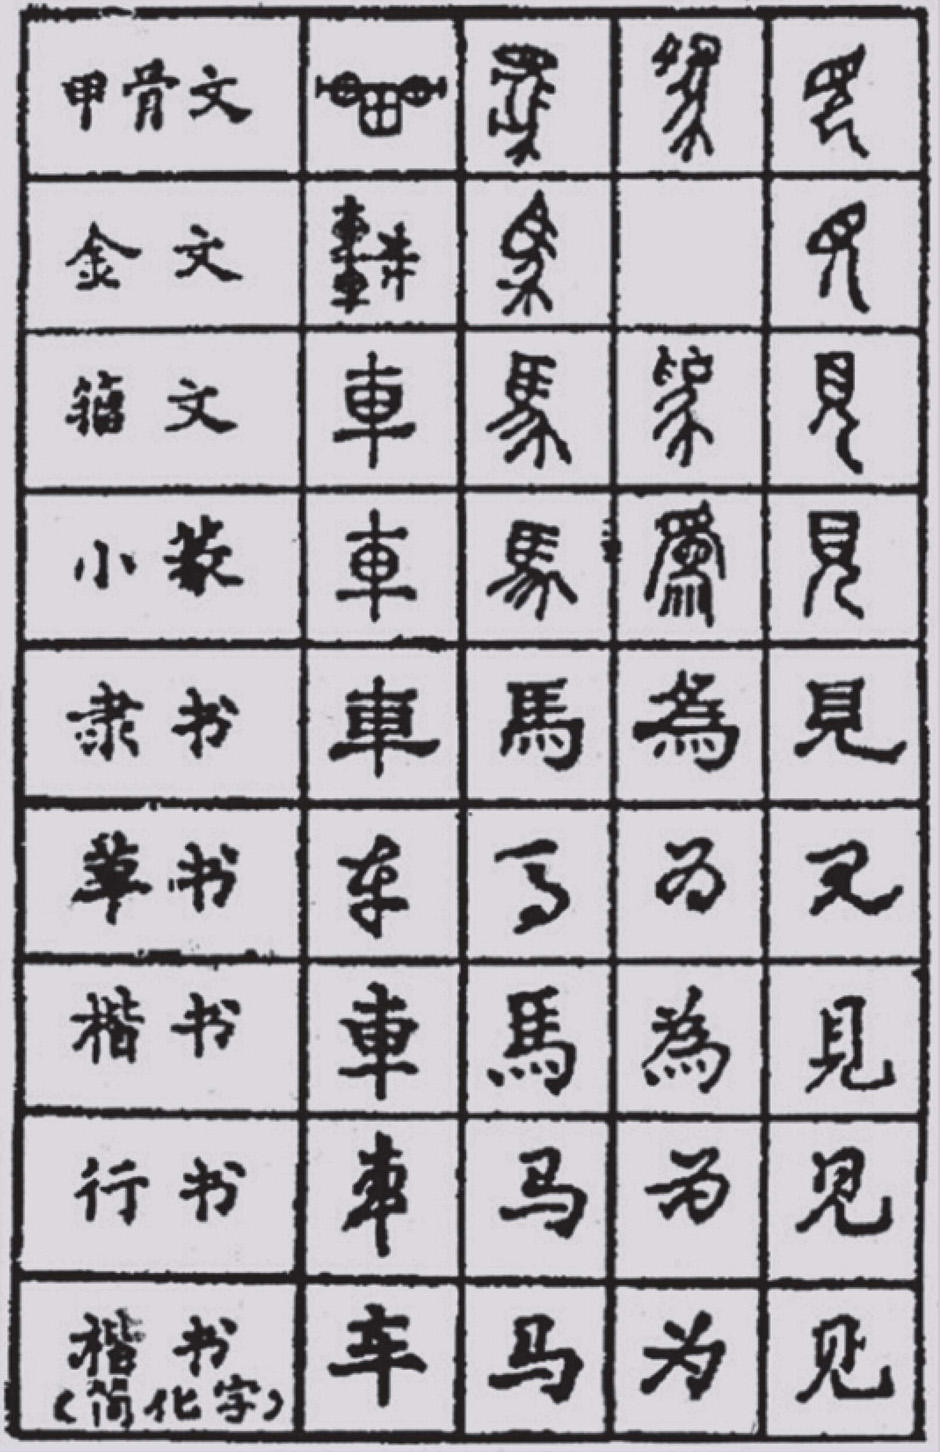 甲骨文 車 馬 為 見
金文 車 馬 見
籀文 車 馬 為 見
小篆 車 馬 為 見
隶书 車 馬 為 見
草书 车 马 为 见
楷书 車 馬 為 見
行书 車 马 为 见
楷书 车 马 为 见
（简化字）